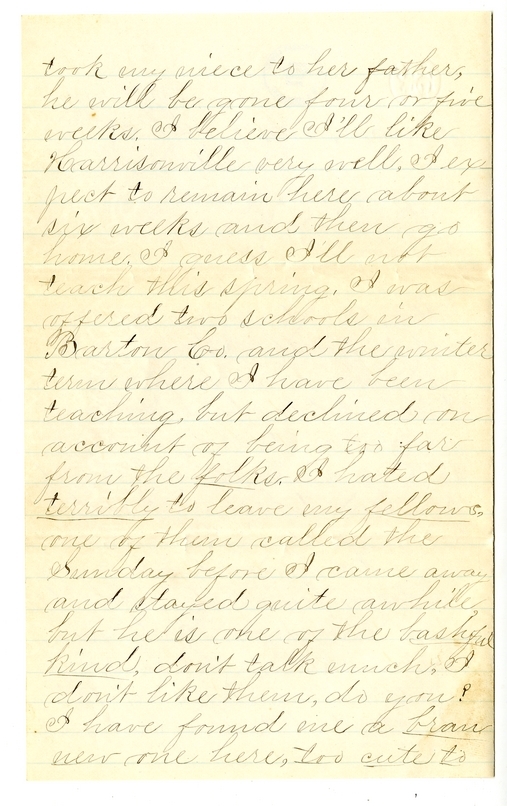 took my niece to her father,
he will be gone four or five
weeks. I believe I'll like
Harrisonville very well. I ex-
pect to remain here about
six weeks and then go
home. I guess I'll not
teach this spring. I was
offered two schools in
Barton Co. and the winter
term where I have been
teaching, but declined on
account of being too far
from the folks. I hated
terribly to leave my fellows,
one of them called the
Sunday before I came away
and stayed quite awhile,
but he is one of the bashful
kind, don't talk much, I
don't like them, do you?
I have found me a bran
new one here, too cute to